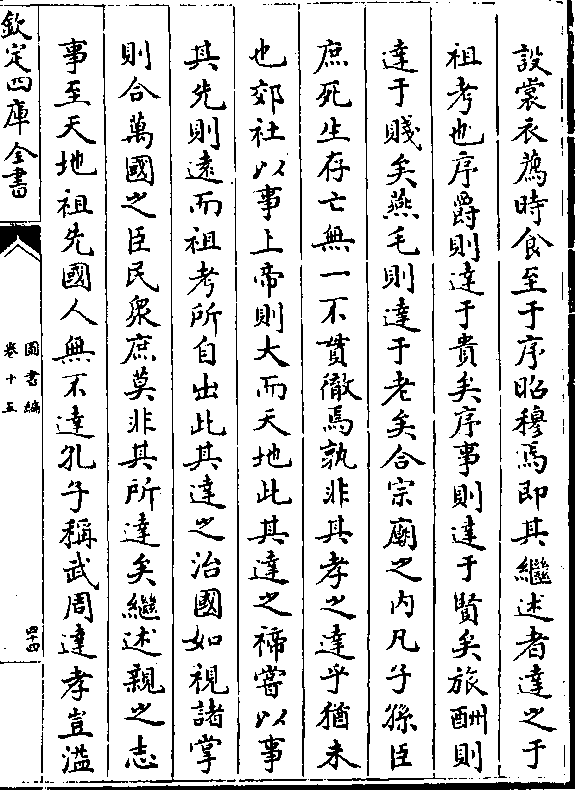 設裳衣薦時食至于序昭穆焉即其繼述者達之于
祖考也序爵則達于貴矣序事則達于賢矣旅酬則
達于賤矣燕毛則達于老矣合宗廟之内凡子孫臣
庶死生存亡無一不貫徹焉孰非其孝之達乎猶未
也郊社以事上帝則大而天地此其達之禘嘗以事
其先則遠而祖考所自出此其達之治國如視諸掌
則合萬國之臣民衆庶莫非其所達矣繼述親之志
事至天地祖先國人無不達孔子稱武周達孝豈溢
欽定四庫全書
圖書編
卷十五
四十四